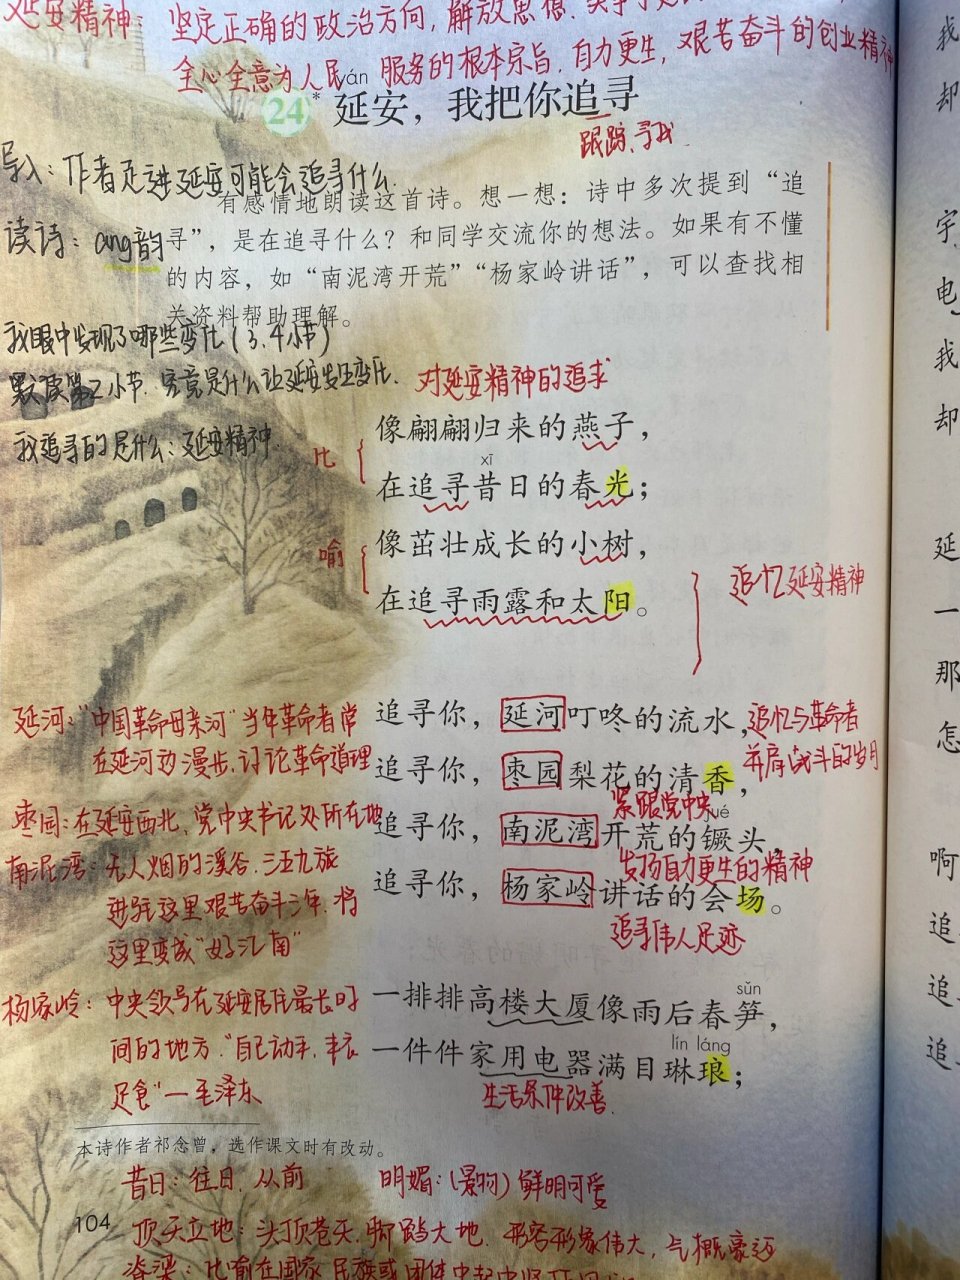 延安精神
坚定正确的政治方向，解放思想、实事求是
全心全意为人民服务的根本宗旨、自力更生，艰苦奋斗的创业精神
yán
24* 延安，我把你追寻
跟踪、寻找
导入：作者走进延安可能会追寻什么
有感情地朗读这首诗。想一想：诗中多次提到“追
读诗：ang韵
寻”，是在追寻什么？和同学交流你的想法。如果有不懂
的内容，如“南泥湾开荒”“杨家岭讲话”，可以查找相
关资料帮助理解。
我眼中发现了哪些变化（3、4小节）
默读第2小节，究竟是什么让延安发生变化.
对延安精神的追求
我追寻的是什么：延安精神.
比
像翩翩归来的燕子，
xī
在追寻昔日的春光；
喻
像茁壮成长的小树，
在追寻雨露和太阳。
追忆延安精神
延河：“中国革命母亲河”当年革命者常
在延河边漫步、讨论革命道理
追寻你，延河叮咚的流水，
追忆与革命者
并肩战斗的岁月
追寻你，枣园梨花的清香，
紧跟党中央
枣园：在延安西北、党中央书记处所在地
jué
追寻你，南泥湾开荒的镢头，
发扬自力更生的精神
南泥湾：无人烟的溪谷、三五九旅
进驻这里艰苦奋斗三年，将
这里变成“好江南”
追寻你，杨家岭讲话的会场。
追寻伟人足迹
杨家岭：中央领导在延安居住最长时
间的地方.“自己动手、丰衣
足食”—毛泽东
sǔn
一排排高楼大厦像雨后春笋，
lín láng
一件件家用电器满目琳琅；
生活条件改善
本诗作者祁念曾，选作课文时有改动。
昔日：往日、从前
明媚：（景物）鲜明可爱
104
顶天立地：头顶苍天、脚踏大地、形容形象伟大，气概豪迈
脊梁：比喻在国家、民族或团体中起中坚作用
我
却
宇
电
我
却
延
一
那
怎
啊
追
追
追